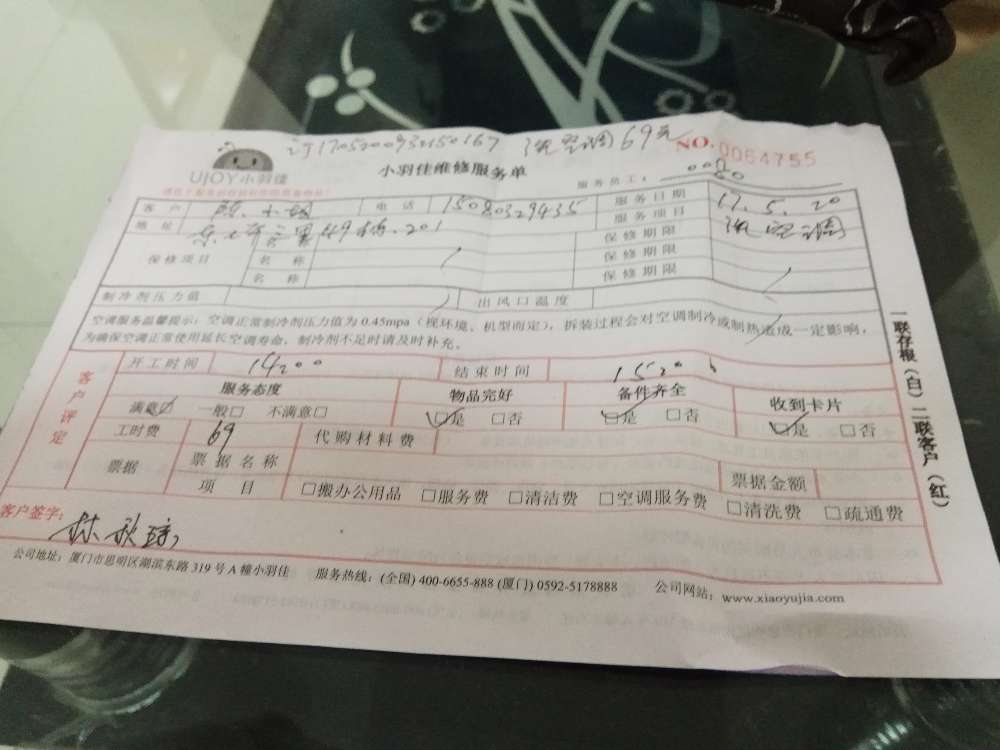 订170520093250167 洗空调69元
NO. 0064755
UJOY小羽佳
小羽佳维修服务单
服务员工：
客户 陈小姐 电话 15080329435 服务日期 17.5.20
地址 201 服务项目 洗空调
保修项目 名称 保修期限
名称 保修期限
保修期限
制冷剂压力值 出风口温度
空调服务温馨提示：空调正常制冷剂压力值为0.45mpa（视环境、机型而定），拆装过程会对空调制冷或制热造成一定影响，
为确保空调正常使用延长空调寿命，制冷剂不足时请及时补充。
客户评定
开工时间 14200 结束时间 1520
服务态度 物品完好 备件齐全 收到卡片
满意☑ 一般□ 不满意□ ☑是 □否 ☑是 □否 ☑是 □否
工时费 69 代购材料费
票据 票据名称 票据金额
项目 □搬办公用品 □服务费 □清洁费 □空调服务费 □清洗费 □疏通费
客户签字：
公司地址：厦门市思明区湖滨东路319号A幢小羽佳 服务热线：(全国) 400-6655-888 (厦门) 0592-5178888 公司网站：www.xiaoyujia.com
一联存根（白）二联客户（红）